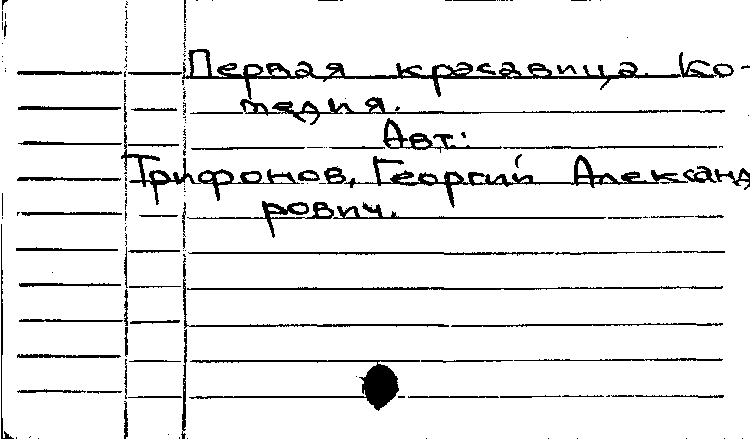 Первая красавица. Ко-
медия.
Авт.:
Трифонов, Георгий Александ
рович.